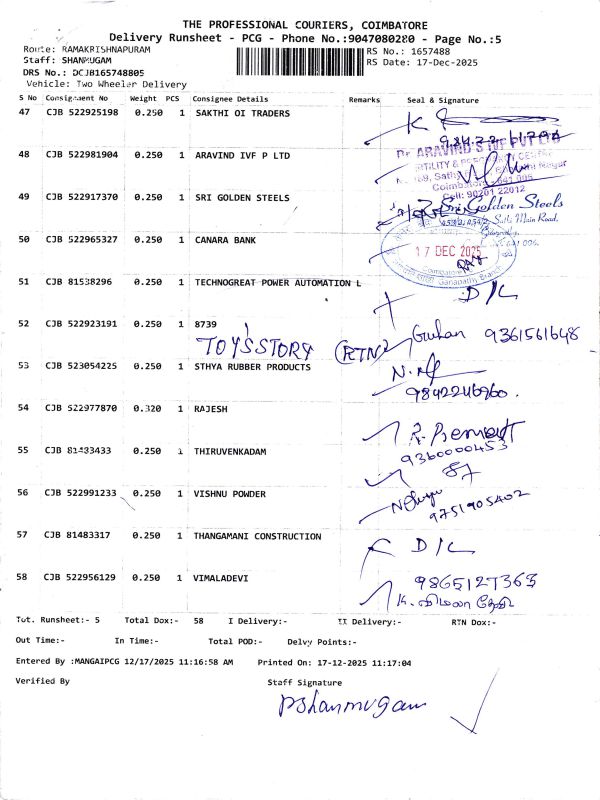 THE PROFESSIONAL COURIERS, COIMBATORE
Delivery Runsheet - PCG - Phone No.:9047080280 - Page No.:5
Route: RAMAKRISHNAPURAM
RS No.: 1657488
Staff: SHANMUGAM
RS Date: 17-Dec-2025
DRS No.: DCJB165748805
Vehicle: Two Wheeler Delivery
S No Consignment No Weight PCS Consignee Details Remarks Seal & Signature
47 CJB 522925198 0.250 1 SAKTHI OI TRADERS
48 CJB 522981904 0.250 1 ARAVIND IVF P LTD
Dr. ARAVIND'S IVF PVT LTD
Cell: 90201 22012
49 CJB 522917370 0.250 1 SRI GOLDEN STEELS
Sri Golden Steels
Sathi Main Road,
50 CJB 522965327 0.250 1 CANARA BANK
17 DEC 2025
Ganapathy Branch
51 CJB 81538296 0.250 1 TECHNOGREAT POWER AUTOMATION L
D/L
52 CJB 522923191 0.250 1 8739
TOYSSTORY (RTN) Guhan 9361561648
53 CJB 523054225 0.250 1 STHYA RUBBER PRODUCTS
9842246960.
54 CJB 522977870 0.320 1 RAJESH
55 CJB 81483433 0.250 1 THIRUVENKADAM
9360000453
56 CJB 522991233 0.250 1 VISHNU POWDER
9751905402
57 CJB 81483317 0.250 1 THANGAMANI CONSTRUCTION
D/L
58 CJB 522956129 0.250 1 VIMALADEVI
9865127363
K. விமலா தேவி
Tot. Runsheet:- 5 Total Dox:- 58 I Delivery:- II Delivery:- RTN Dox:-
Out Time:- In Time:- Total POD:- Delvy Points:-
Entered By :MANGAIPCG 12/17/2025 11:16:58 AM Printed On: 17-12-2025 11:17:04
Verified By Staff Signature
pshanmugam